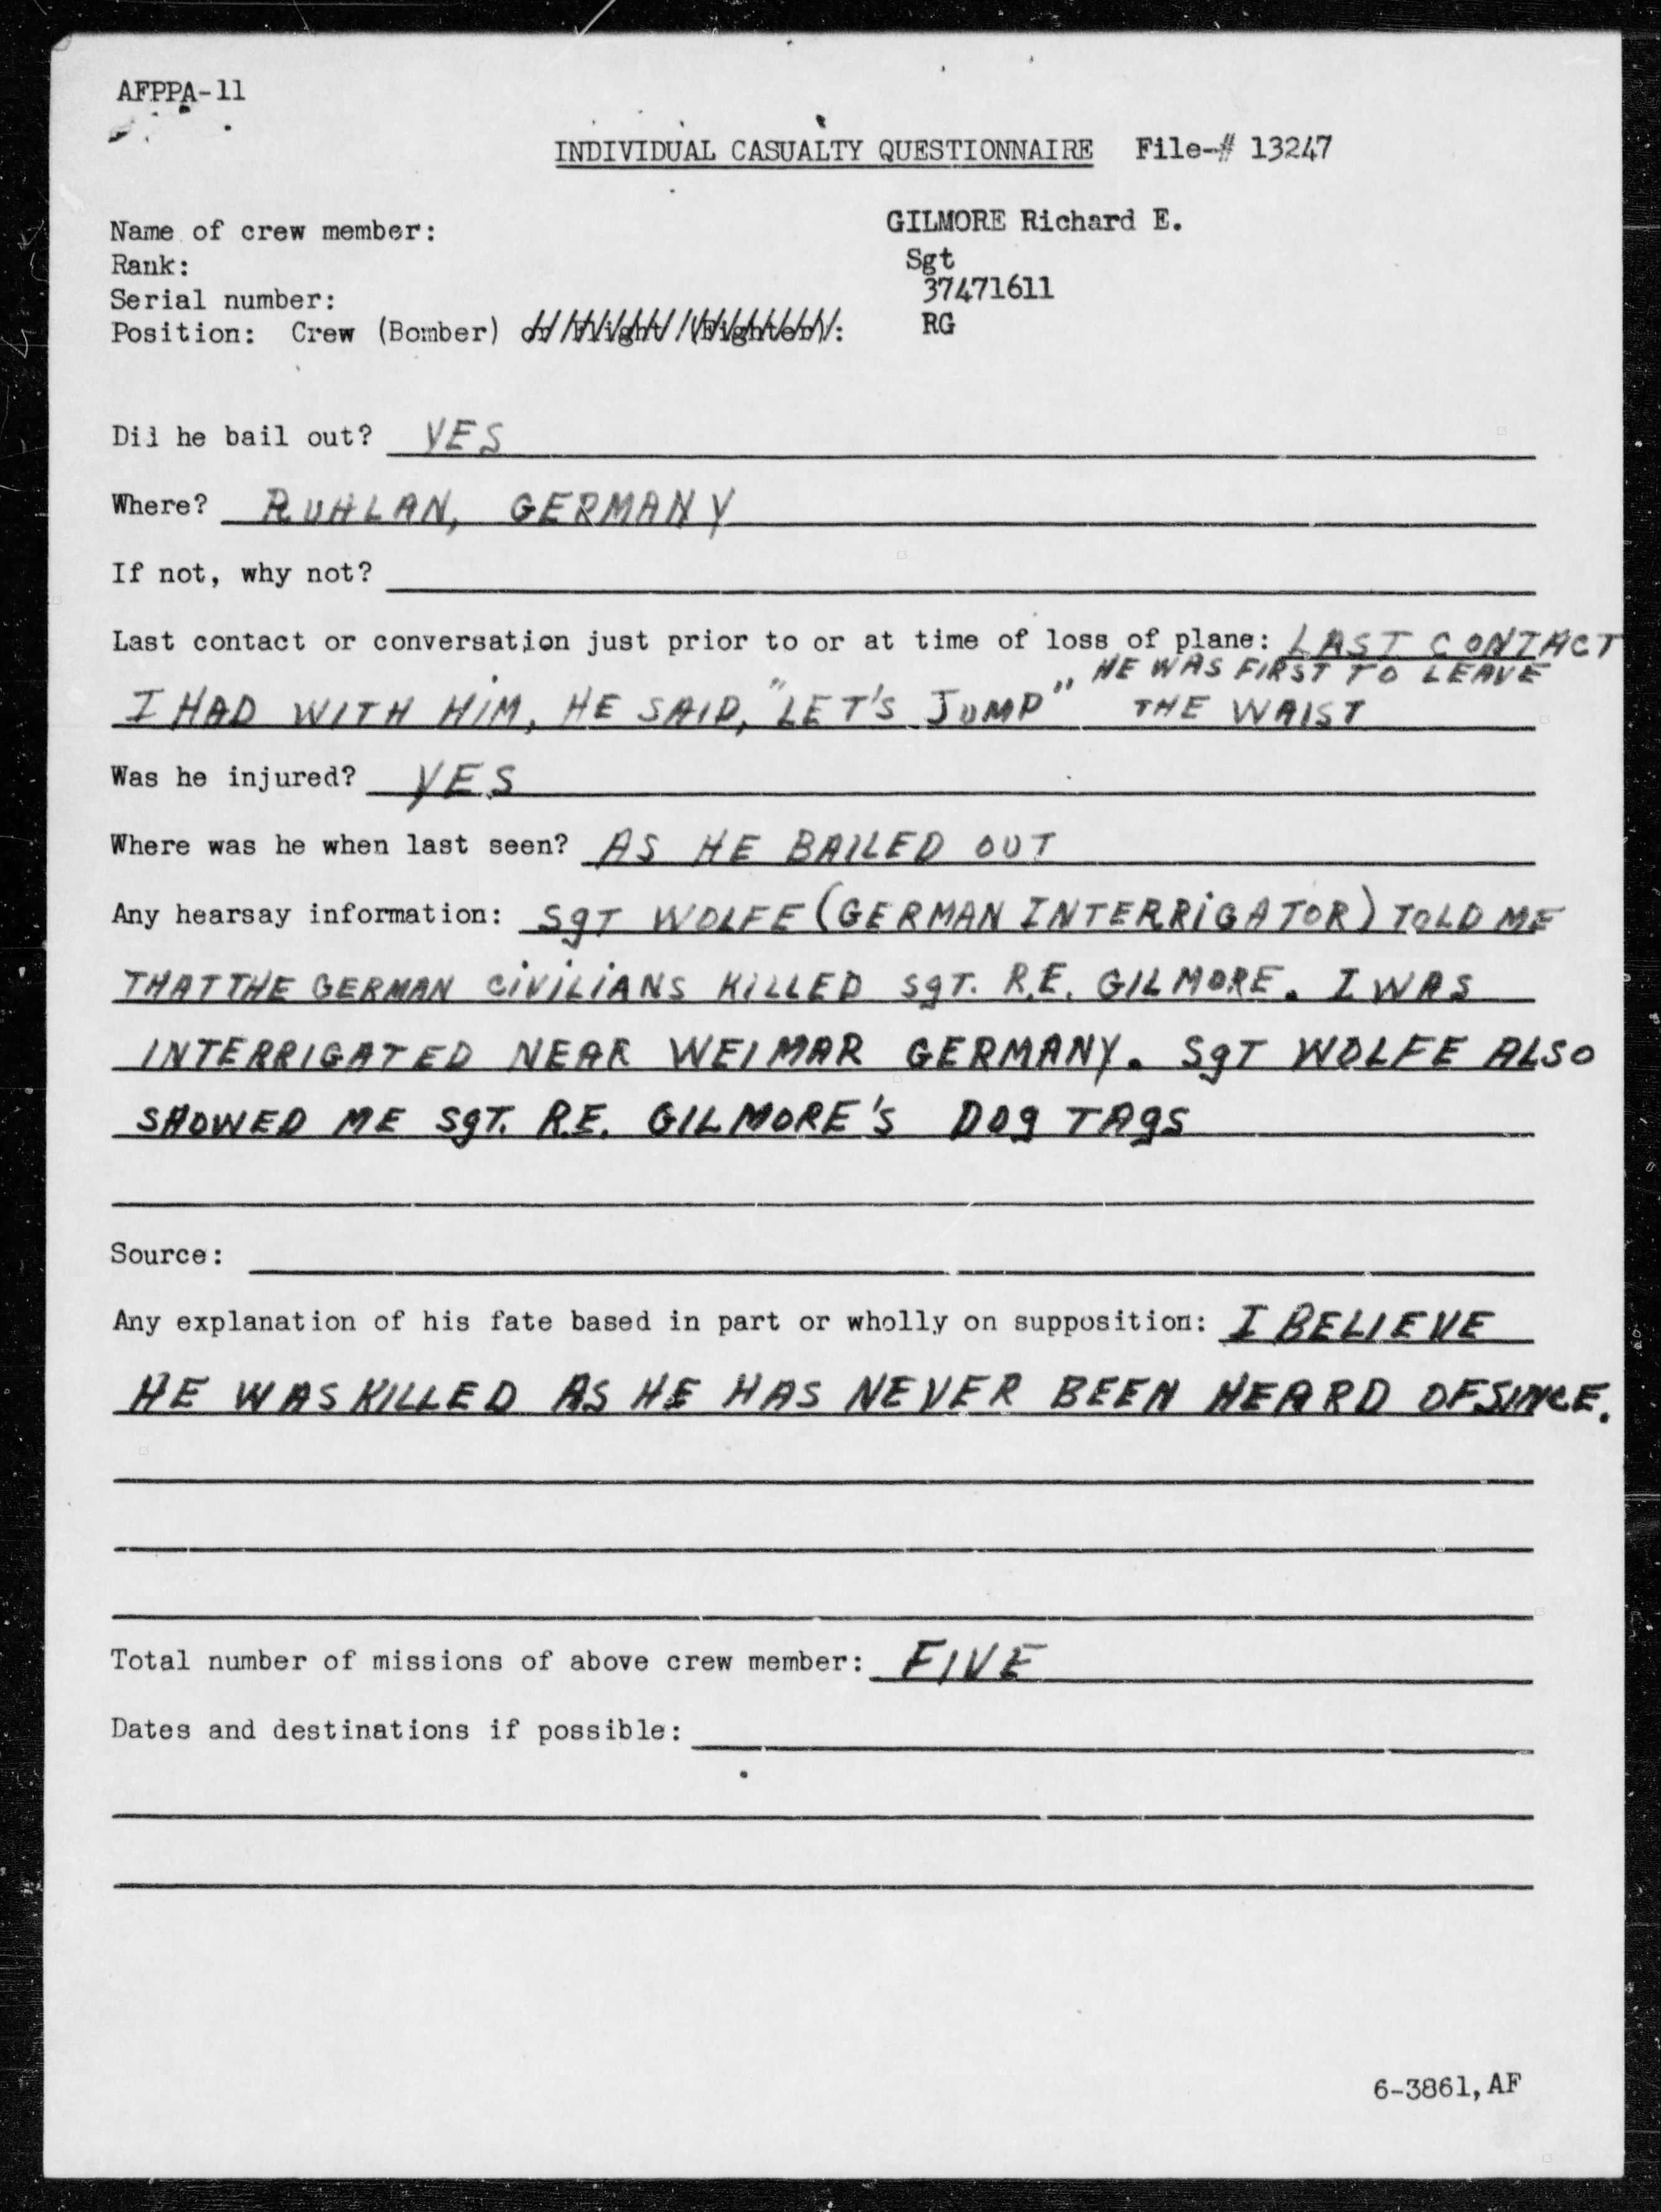 AFPPA-11
INDIVIDUAL CASUALTY QUESTIONNAIRE File-# 13247
Name of crew member: GILMORE Richard E.
Rank: Sgt
Serial number: 37471611
Position: Crew (Bomber) or Flight (Fighter): RG
Did he bail out? YES
Where? RUHLAN, GERMANY
If not, why not?
Last contact or conversation just prior to or at time of loss of plane: LAST CONTACT
I HAD WITH HIM, HE SAID, "LET'S JUMP" HE WAS FIRST TO LEAVE
THE WAIST
Was he injured? YES
Where was he when last seen? AS HE BAILED OUT
Any hearsay information: SgT WOLFE (GERMAN INTERRIGATOR) TOLD ME
THAT THE GERMAN CIVILIANS KILLED SgT. R.E. GILMORE. I WAS
INTERRIGATED NEAR WEIMAR GERMANY. SgT WOLFE ALSO
SHOWED ME SgT. R.E. GILMORE'S DOg TAgS
Source:
Any explanation of his fate based in part or wholly on supposition: I BELIEVE
HE WAS KILLED AS HE HAS NEVER BEEN HEARD OF SINCE.
Total number of missions of above crew member: FIVE
Dates and destinations if possible:
6-3861, AF